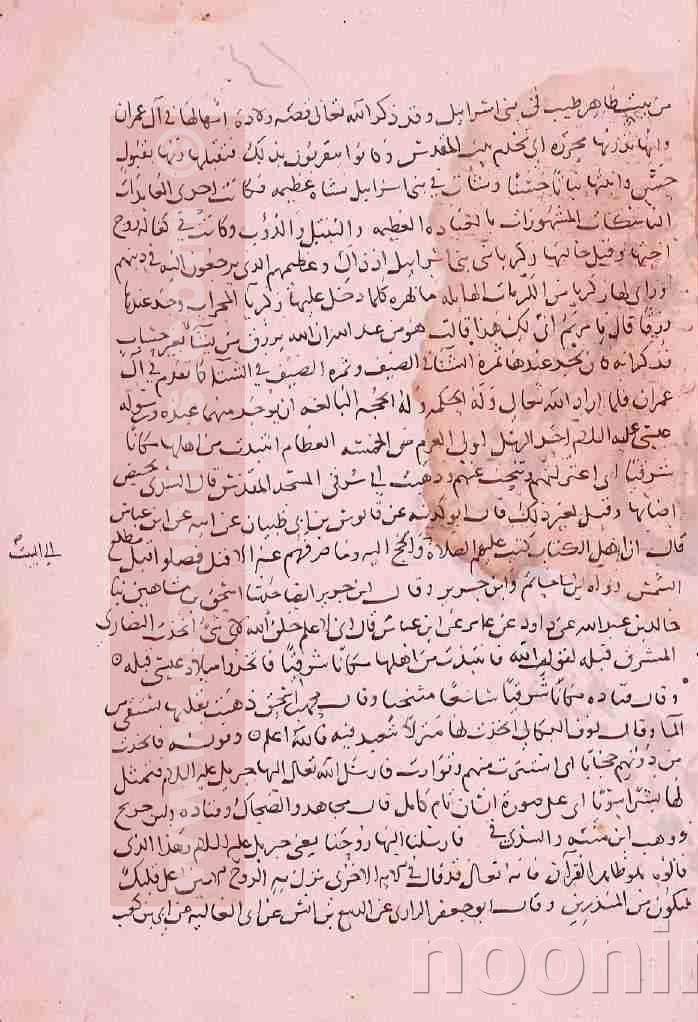 من بيت طاهر طيب في بني اسرائيل وقد ذكر الله تعالى قصة ولادة امها لها في آل عمران
وانها نذرتها محررة اى تخدم بيت المقدس وكانوا يتقربون بذلك فتقبلها ربها بقبول
حسن وانبتها نباتا حسنا ونشات في بني اسرايل نشاة عظيمه فكانت احدى العابدات
الناسكات المشهورات بالعبادة العظيمه والتبتل والدؤب وكانت في كفالة زوج
اختها وقيل خالتها زكريا نبي بني اسرايل اذ ذاك وعظيمهم الذي يرجعون اليه في دينهم
وراى لها زكريا من الكرامات الهايله ما بهره كلما دخل عليها زكريا المحراب وجد عندها
رزقا قال يا مريم انى لك هذا قالت هو من عند الله ان الله يرزق من يشآ بغير حساب
فذكر انه كان يجد عندها ثمرة الشتا في الصيف وثمرة الصيف في الشتا كما تقدم في آل
عمران فلما اراد الله تعالى وله الحكمه وله الحجه البالغه ان يوجد منها عبده ورسوله
عيسى عليه السلام احد الرسل اولي العزم من الخمسه العظام انتبذت من اهلها مكانا
شرقيا اى اعتزلتهم وتنحت عنهم وذهبت الى شرقي المسجد المقدس قال السدى لحيض
اصابها وقيل لغير ذلك قال ابو كدينه عن قابوس بن ابي ظبيان عن ابيه عن ابن عباس
قال ان اهل الكتاب كتب عليهم الصلاة والحج اليه وما صرفهم عنه الا قيل فصلوا قبل مطلع
الى البيت
الشمس رواه ابن ابي حاتم وابن جرير وقال ابن جرير ايضا حدثنا اسحق بن شاهين ثنا
خالد بن عبد الله عن داود عن عامر عن ابن عباس قال انى لاعلم خلق الله لاى شئ اتخذت النصارى
المشرق قبلة لقول الله فانتبذت من اهلها مكانا شرقيا فاتخذوا ميلاد عيسى قبله
وقال قتاده مكانا شرقيا شاسعا متنحيا وقال محمد بن اسحق ذهبت بقلتها لتستقى من
المآ وقال نوف البكالي اتخذت لها منزلا تتعبد فيه فالله اعلم وقوله فاتخذت
من دونهم حجابا اى استترت منهم وتوارت فارسل الله تعالى اليها جبريل عليه السلام فتمثل
لها بشرا سويا اى على صورة انسان تام كامل قال مجاهد والضحاك وقتاده وابن جريج
ووهب ابن منبه والسدى في فارسلنا اليها روحنا يعني جبريل عليه السلام وهذا الذى
قالوه هو ظاهر القرآن فانه تعالى قد قال في الاية الاخرى نزل به الروح الامين على قلبك
لتكون من المنذرين وقال ابو جعفر الرازى عن الربيع بن انس عن ابى العاليه عن ابي بن كعب
noonin